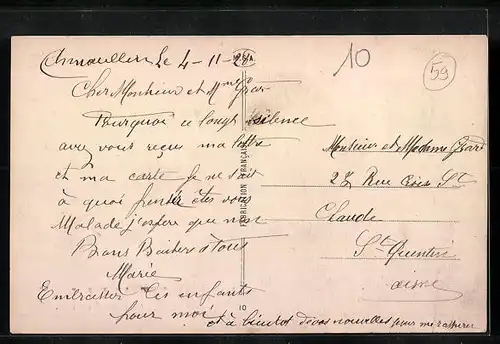 Annoeullin Le 4-11-29
Cher Monsieur et Mme
Pourquoi ce long silence
avez vous reçus ma lettre
et ma carte je ne sait
à quoi penser êtes vous
Malade j'espere que non
Bons Baisers a Tous
Marie
Embrasser les enfants
pour moi
et à bientot de vos nouvelles pour me rassurer
FABRICATION FRANÇAISE
10
10
59
Monsieur et Madame
27 Rue Croix St
Claude
St Quentin
aisne